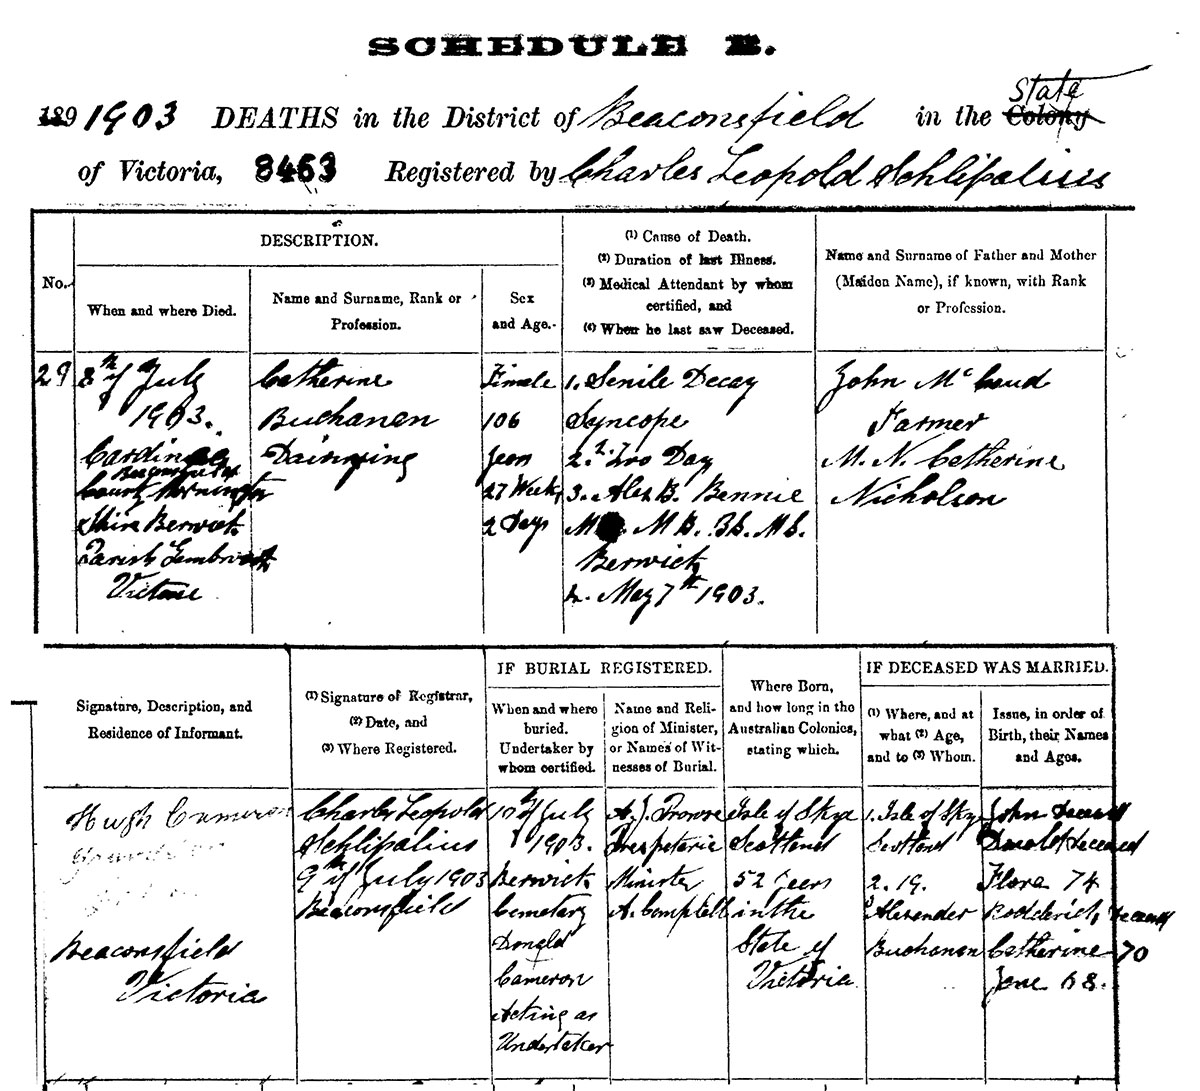 SCHEDULE B.
189 1903 DEATHS in the District of Beaconsfield in the Colony State
of Victoria, 8463 Registered by Charles Leopold Schlipalius
No.
DESCRIPTION.
When and where Died.
Name and Surname, Rank or
Profession.
Sex
and Age.
(1) Cause of Death.
(2) Duration of last Illness.
(3) Medical Attendant by whom
certified, and
(4) When he last saw Deceased.
Name and Surname of Father and Mother
(Maiden Name), if known, with Rank
or Profession.
29
8th of July
1903.
Cardinia
Beaconsfield
County Mornington
Shire Berwick
Parish Gembrook
Catherine
Buchanan
Female
106
27 Weeks
2 Days
1. Senile Decay
Syncope
2. Two Day
3. Alex B. Bennie
M. B.
Berwick
4. May 7th 1903.
John
Farmer
M. N. Catherine
Nicholson
Signature, Description, and
Residence of Informant.
(1) Signature of Registrar,
(2) Date, and
(3) Where Registered.
IF BURIAL REGISTERED.
When and where
buried.
Undertaker by
whom certified.
Name and Reli-
gion of Minister,
or Names of Wit-
nesses of Burial.
Where Born,
and how long in the
Australian Colonies,
stating which.
IF DECEASED WAS MARRIED.
(1) Where, and at
what (2) Age,
and to (3) Whom.
Issue, in order of
Birth, their Names
and Ages.
Hugh Cameron
Beaconsfield
Victoria
Charles Leopold
Schlipalius
9th of July 1903
Beaconsfield
10th of July
1903.
Berwick
Cemetary
Donald
Cameron
Acting as
Undertaker
A. J.
Minister
A. Campbell
Isle of Skye
Scotland
52 Years
in the
State of
Victoria
1. Isle of Skye
Scotland
2. 19.
3 Alexander
Buchanan
John Deceased
Donald deceased
Flora 74
Rodderick, Deceased
Catherine 70
Jane 68.